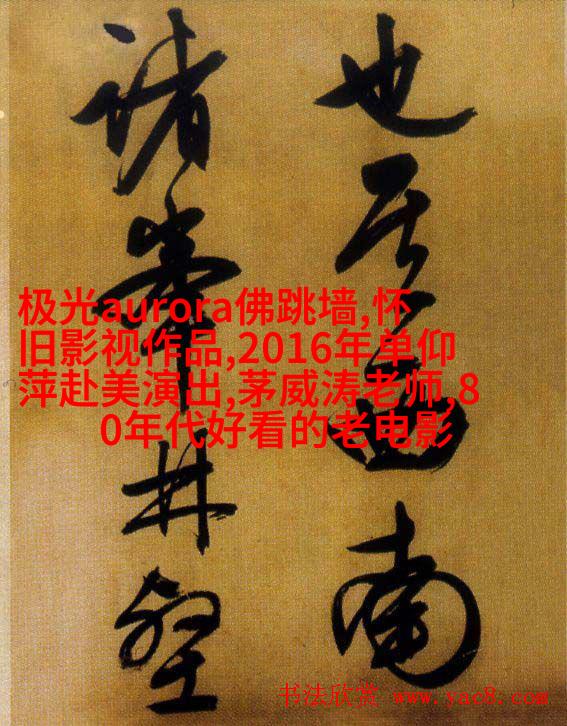 也其西南
诸峯林壑
极光aurora佛跳墙,怀
旧影视作品,2016年单仰
萍赴美演出,茅威涛老师,8
0年代好看的老电影
书法欣赏 www.yac8.com